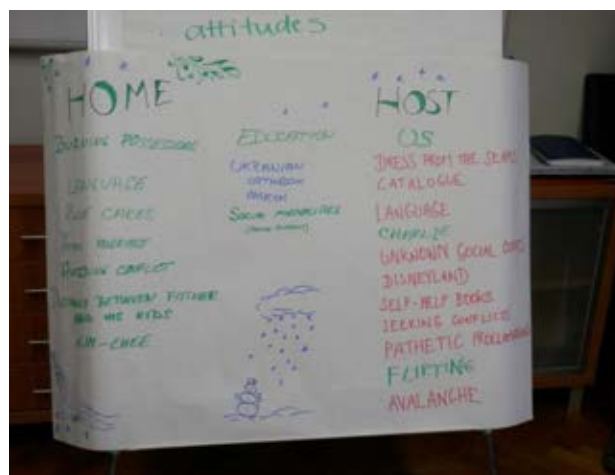 attitudes
HOME
BURNING POSSESSIONS
LANGUAGE
RICE CAKES
AVOIDING CONFLICT
DISTANCE BETWEEN FATHER
AND HIS KIDS
KIM-CHEE
EDUCATION
UKRANIAN
ORTHODOX
SOCIAL
HOST
US
DRESS FROM THE SEARS
CATALOGUE
LANGUAGE
CHARLIE
UNKNOWN SOCIAL CODES
DISNEYLAND
SELF-HELP BOOKS
SEEKING CONFLICTS
PATHETIC
FLIRTING
AVALANCHE